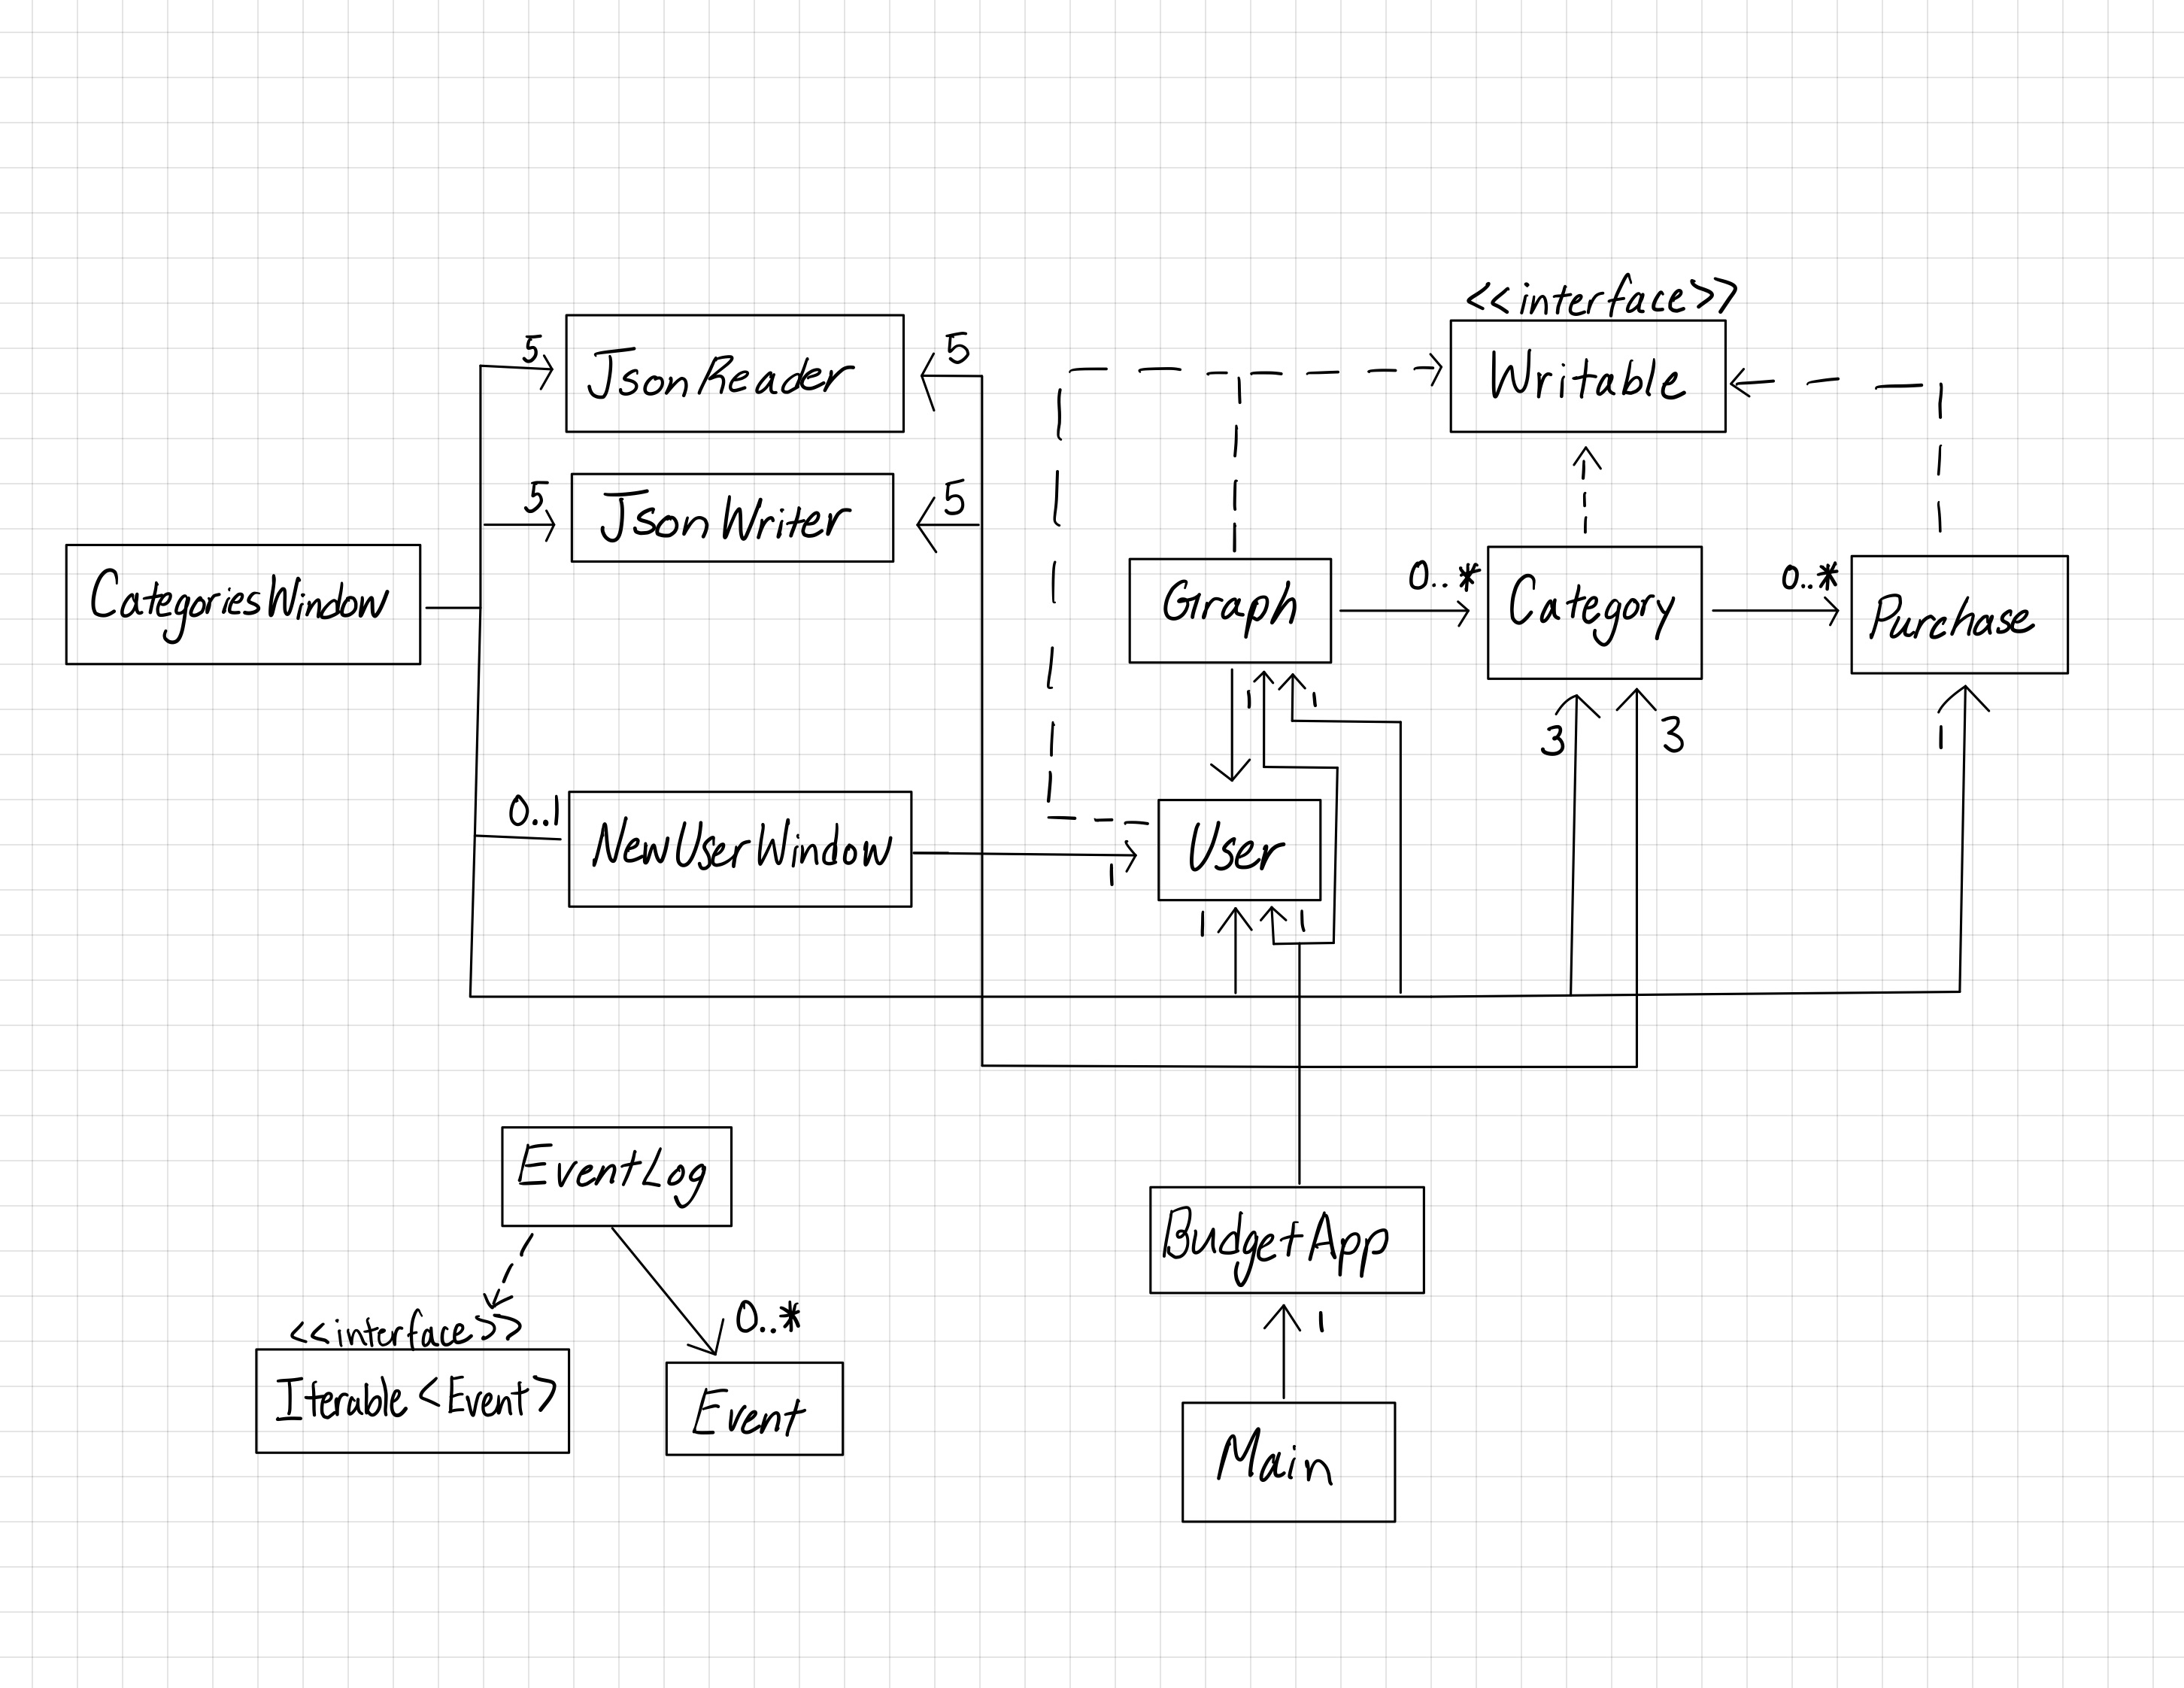 <<interface>>
Writable
5
JsonReader
5
5
JsonWriter
5
CategoriesWindow
Graph
0..*
Category
0..*
Purchase
1
1
3
3
1
0..1
NewUserWindow
1
User
1
1
EventLog
BudgetApp
<<interface>>
Iterable<Event>
0..*
Event
1
Main